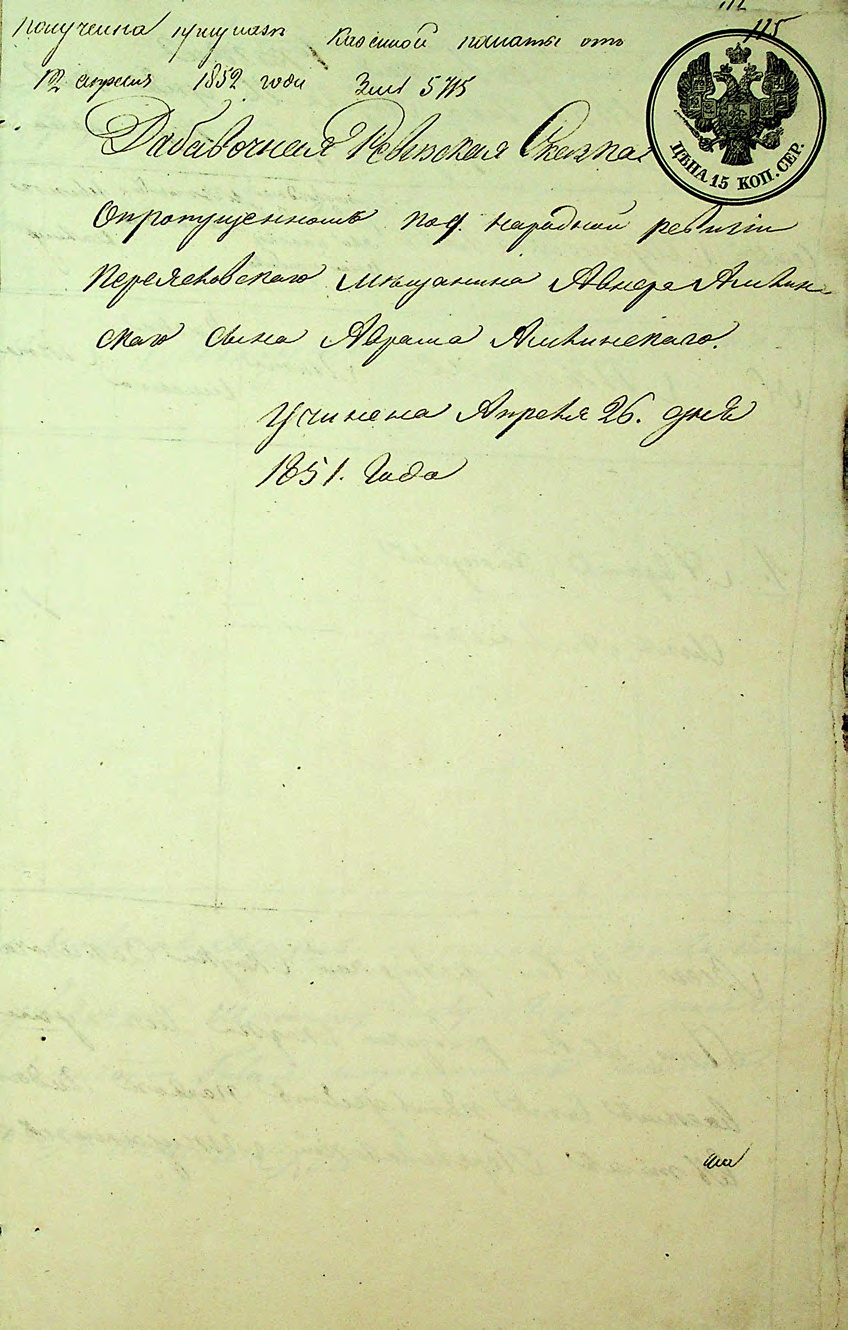 112
115
получена при указе казенной палаты от
12 апреля 1852 года За № 5715
ЦѢНА 15 КОП. СЕР.
Дабавочная Ревизская Сказка
Опропущенномъ по 9. народной ревизіи
Переясловскаго мѣщанина Авнера Аливин-
скаго сына Абрама Аливинскаго.
Учинена Апреля 26. дня
1851. Года